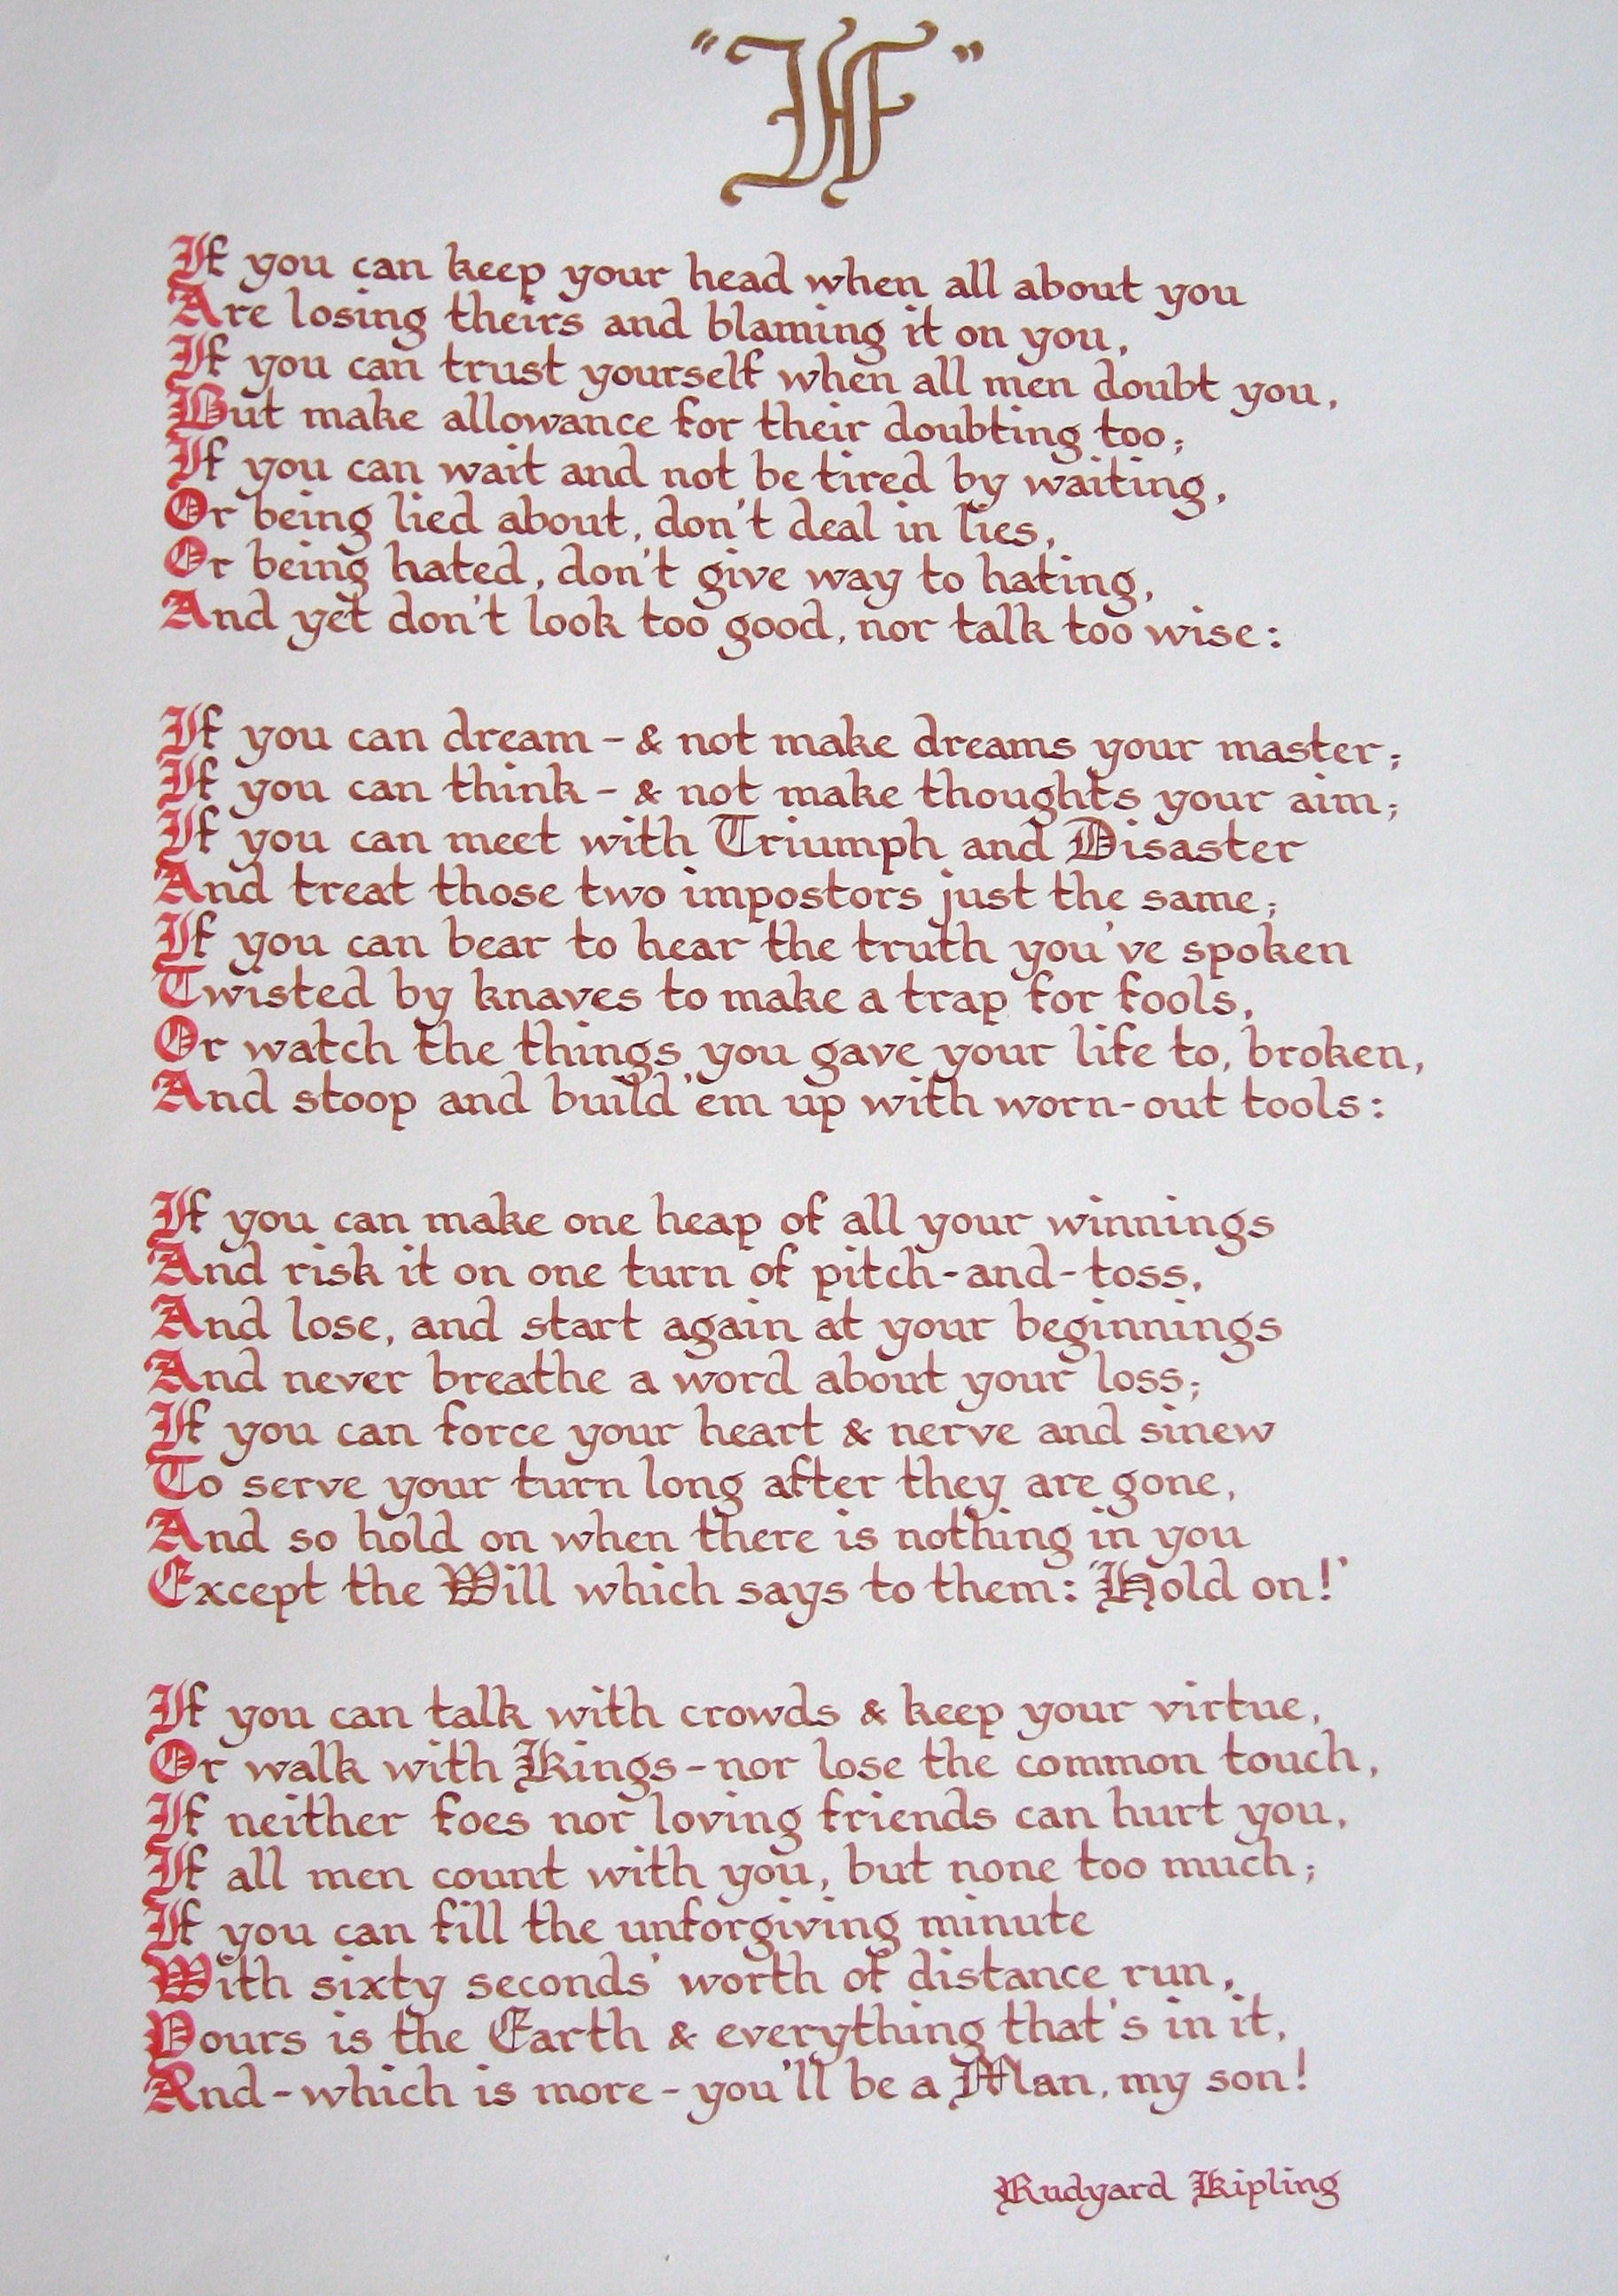 "If"
If you can keep your head when all about you
Are losing theirs and blaming it on you,
If you can trust yourself when all men doubt you,
But make allowance for their doubting too;
If you can wait and not be tired by waiting,
Or being lied about, don't deal in lies,
Or being hated, don't give way to hating,
And yet don't look too good, nor talk too wise:
If you can dream - & not make dreams your master;
If you can think - & not make thoughts your aim;
If you can meet with Triumph and Disaster
And treat those two impostors just the same;
If you can bear to hear the truth you've spoken
Twisted by knaves to make a trap for fools,
Or watch the things you gave your life to, broken,
And stoop and build 'em up with worn-out tools:
If you can make one heap of all your winnings
And risk it on one turn of pitch-and-toss,
And lose, and start again at your beginnings
And never breathe a word about your loss;
If you can force your heart & nerve and sinew
To serve your turn long after they are gone,
And so hold on when there is nothing in you
Except the Will which says to them: 'Hold on!'
If you can talk with crowds & keep your virtue,
Or walk with Kings - nor lose the common touch,
If neither foes nor loving friends can hurt you,
If all men count with you, but none too much;
If you can fill the unforgiving minute
With sixty seconds' worth of distance run,
Yours is the Earth & everything that's in it,
And - which is more - you'll be a Man, my son!
Rudyard Kipling